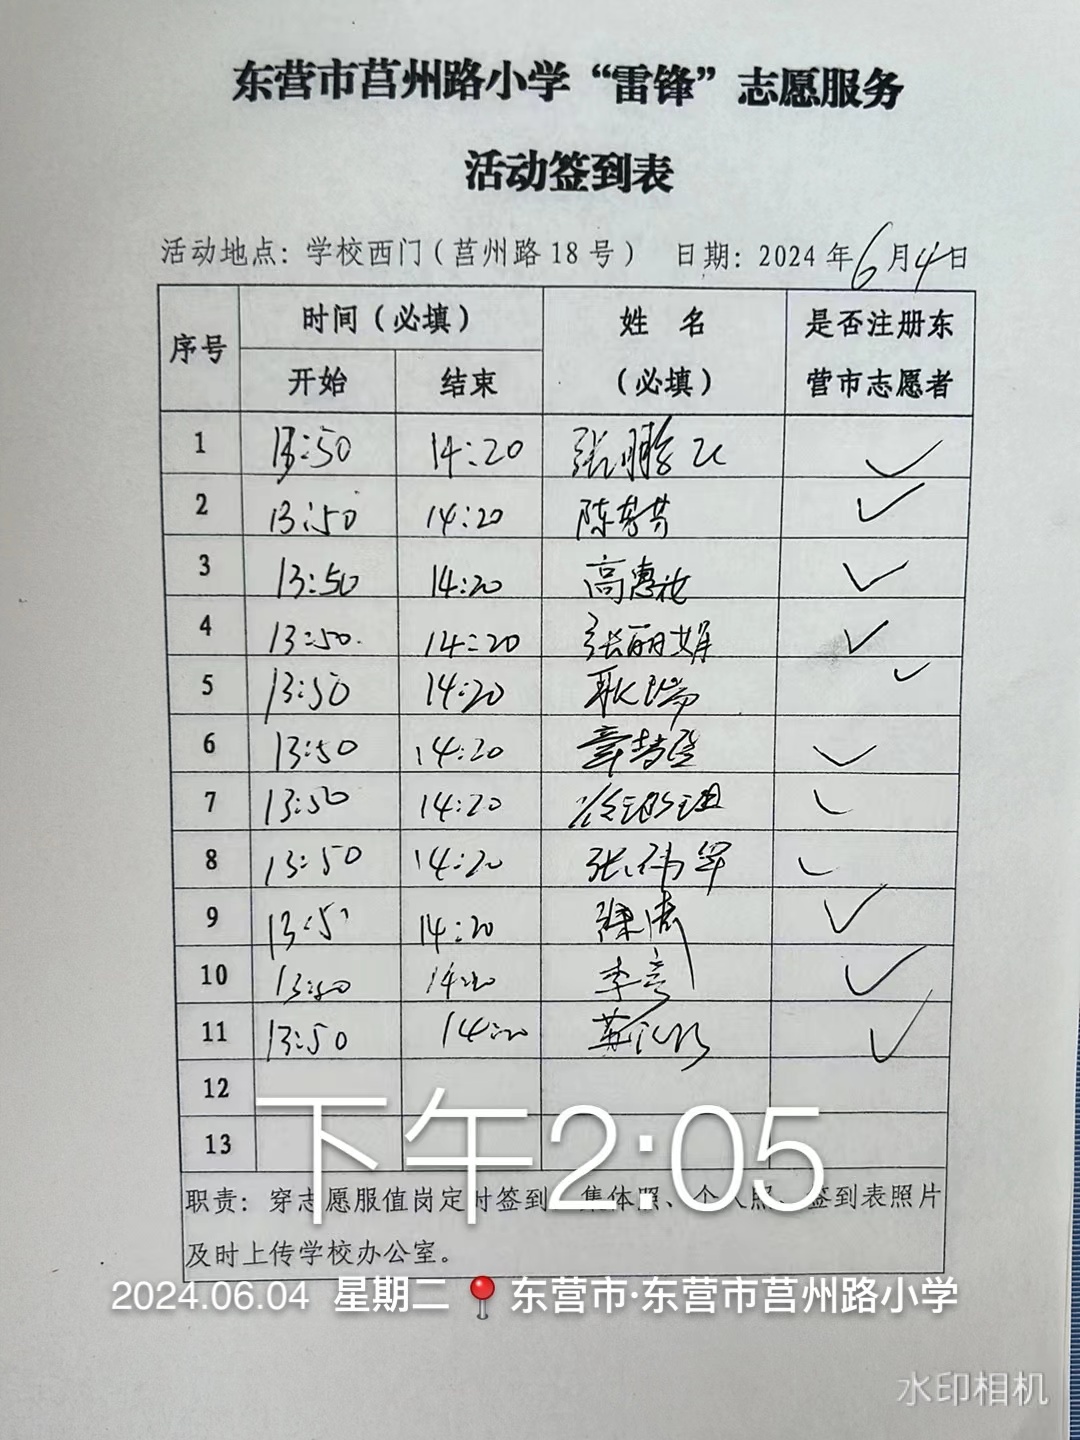 东营市莒州路小学“雷锋”志愿服务
活动签到表
活动地点：学校西门（莒州路18号） 日期：2024年6月4日
序号 时间（必填） 姓 名（必填） 是否注册东营市志愿者
开始 结束
1 13:50 14:20 张鹏 ✓
2 13:50 14:20 陈 ✓
3 13:50 14:20 高惠 ✓
4 13:50. 14:20 张丽娟 ✓
5 13:50 14:20 耿瑞 ✓
6 13:50 14:20 ✓
7 13:50 14:20 ✓
8 13:50 14:20 张伟军 ✓
9 13:5 14:20 ✓
10 13:50 14:20 李 ✓
11 13:50 14:20 ✓
12
13
下午2:05
职责：穿志愿服值岗定时签到 集体照、个人照、签到表照片
及时上传学校办公室。
2024.06.04 星期二 📍东营市·东营市莒州路小学
水印相机